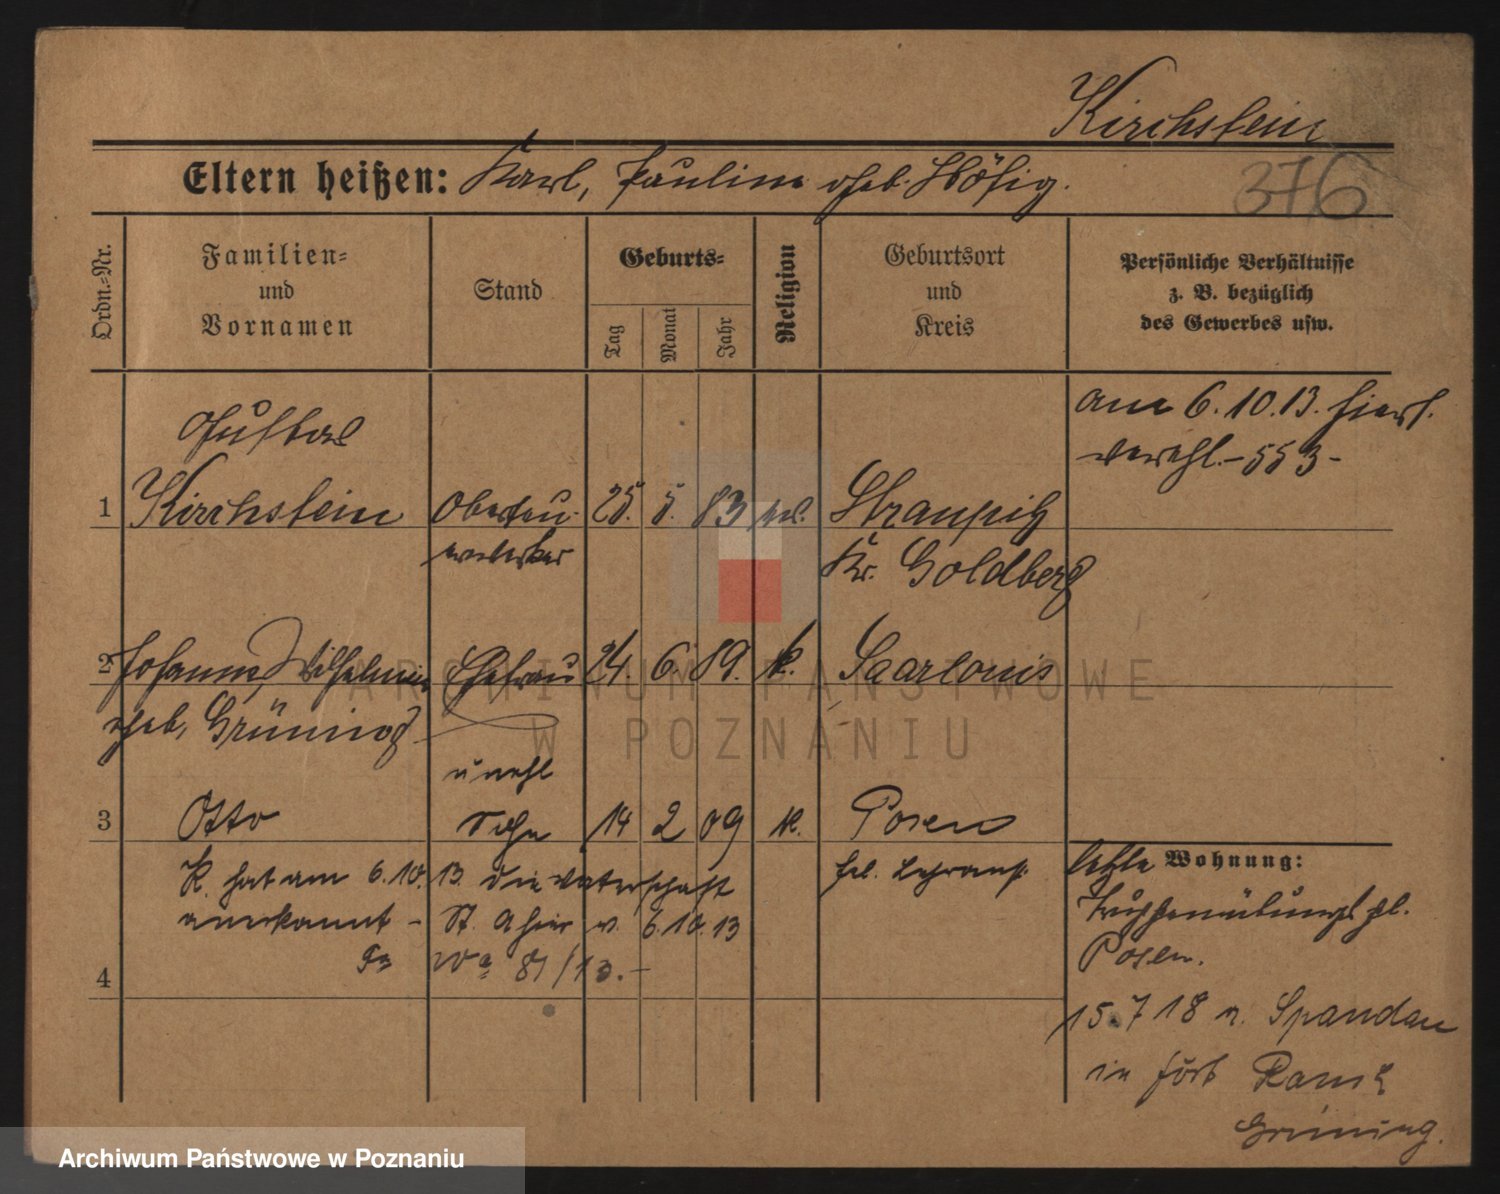 Kirchstein
Eltern heißen: Karl, Pauline geb. Höfig.
376
Ordn.-Nr.
Familien- und Vornamen
Stand
Geburts-
Tag
Monat
Jahr
Religion
Geburtsort und Kreis
Persönliche Verhältnisse z. B. bezüglich des Gewerbes usw.
am 6.10.13. hiers.
verehl. - 553 -
Gustav
1 Kirchstein 25. 5. 83 Straupitz
Kr. Goldberg
2 Johanna, Wilhelmine Ehefrau 24. 6. 89. k. Saarlouis
geb. Grüning
unehl
3 Otto Sohn 14 2 09 k. Posen
K. hat am 6.10.13 die Vaterschaft
anerkannt - St. A hier v. 6.10.13
81/13. -
4
letzte Wohnung:
Truppenübungspl.
Posen.
15.7 18 n. Spandau
in fort
Grüning.
ARCHIWUM PAŃSTWOWE
W POZNANIU
Archiwum Państwowe w Poznaniu